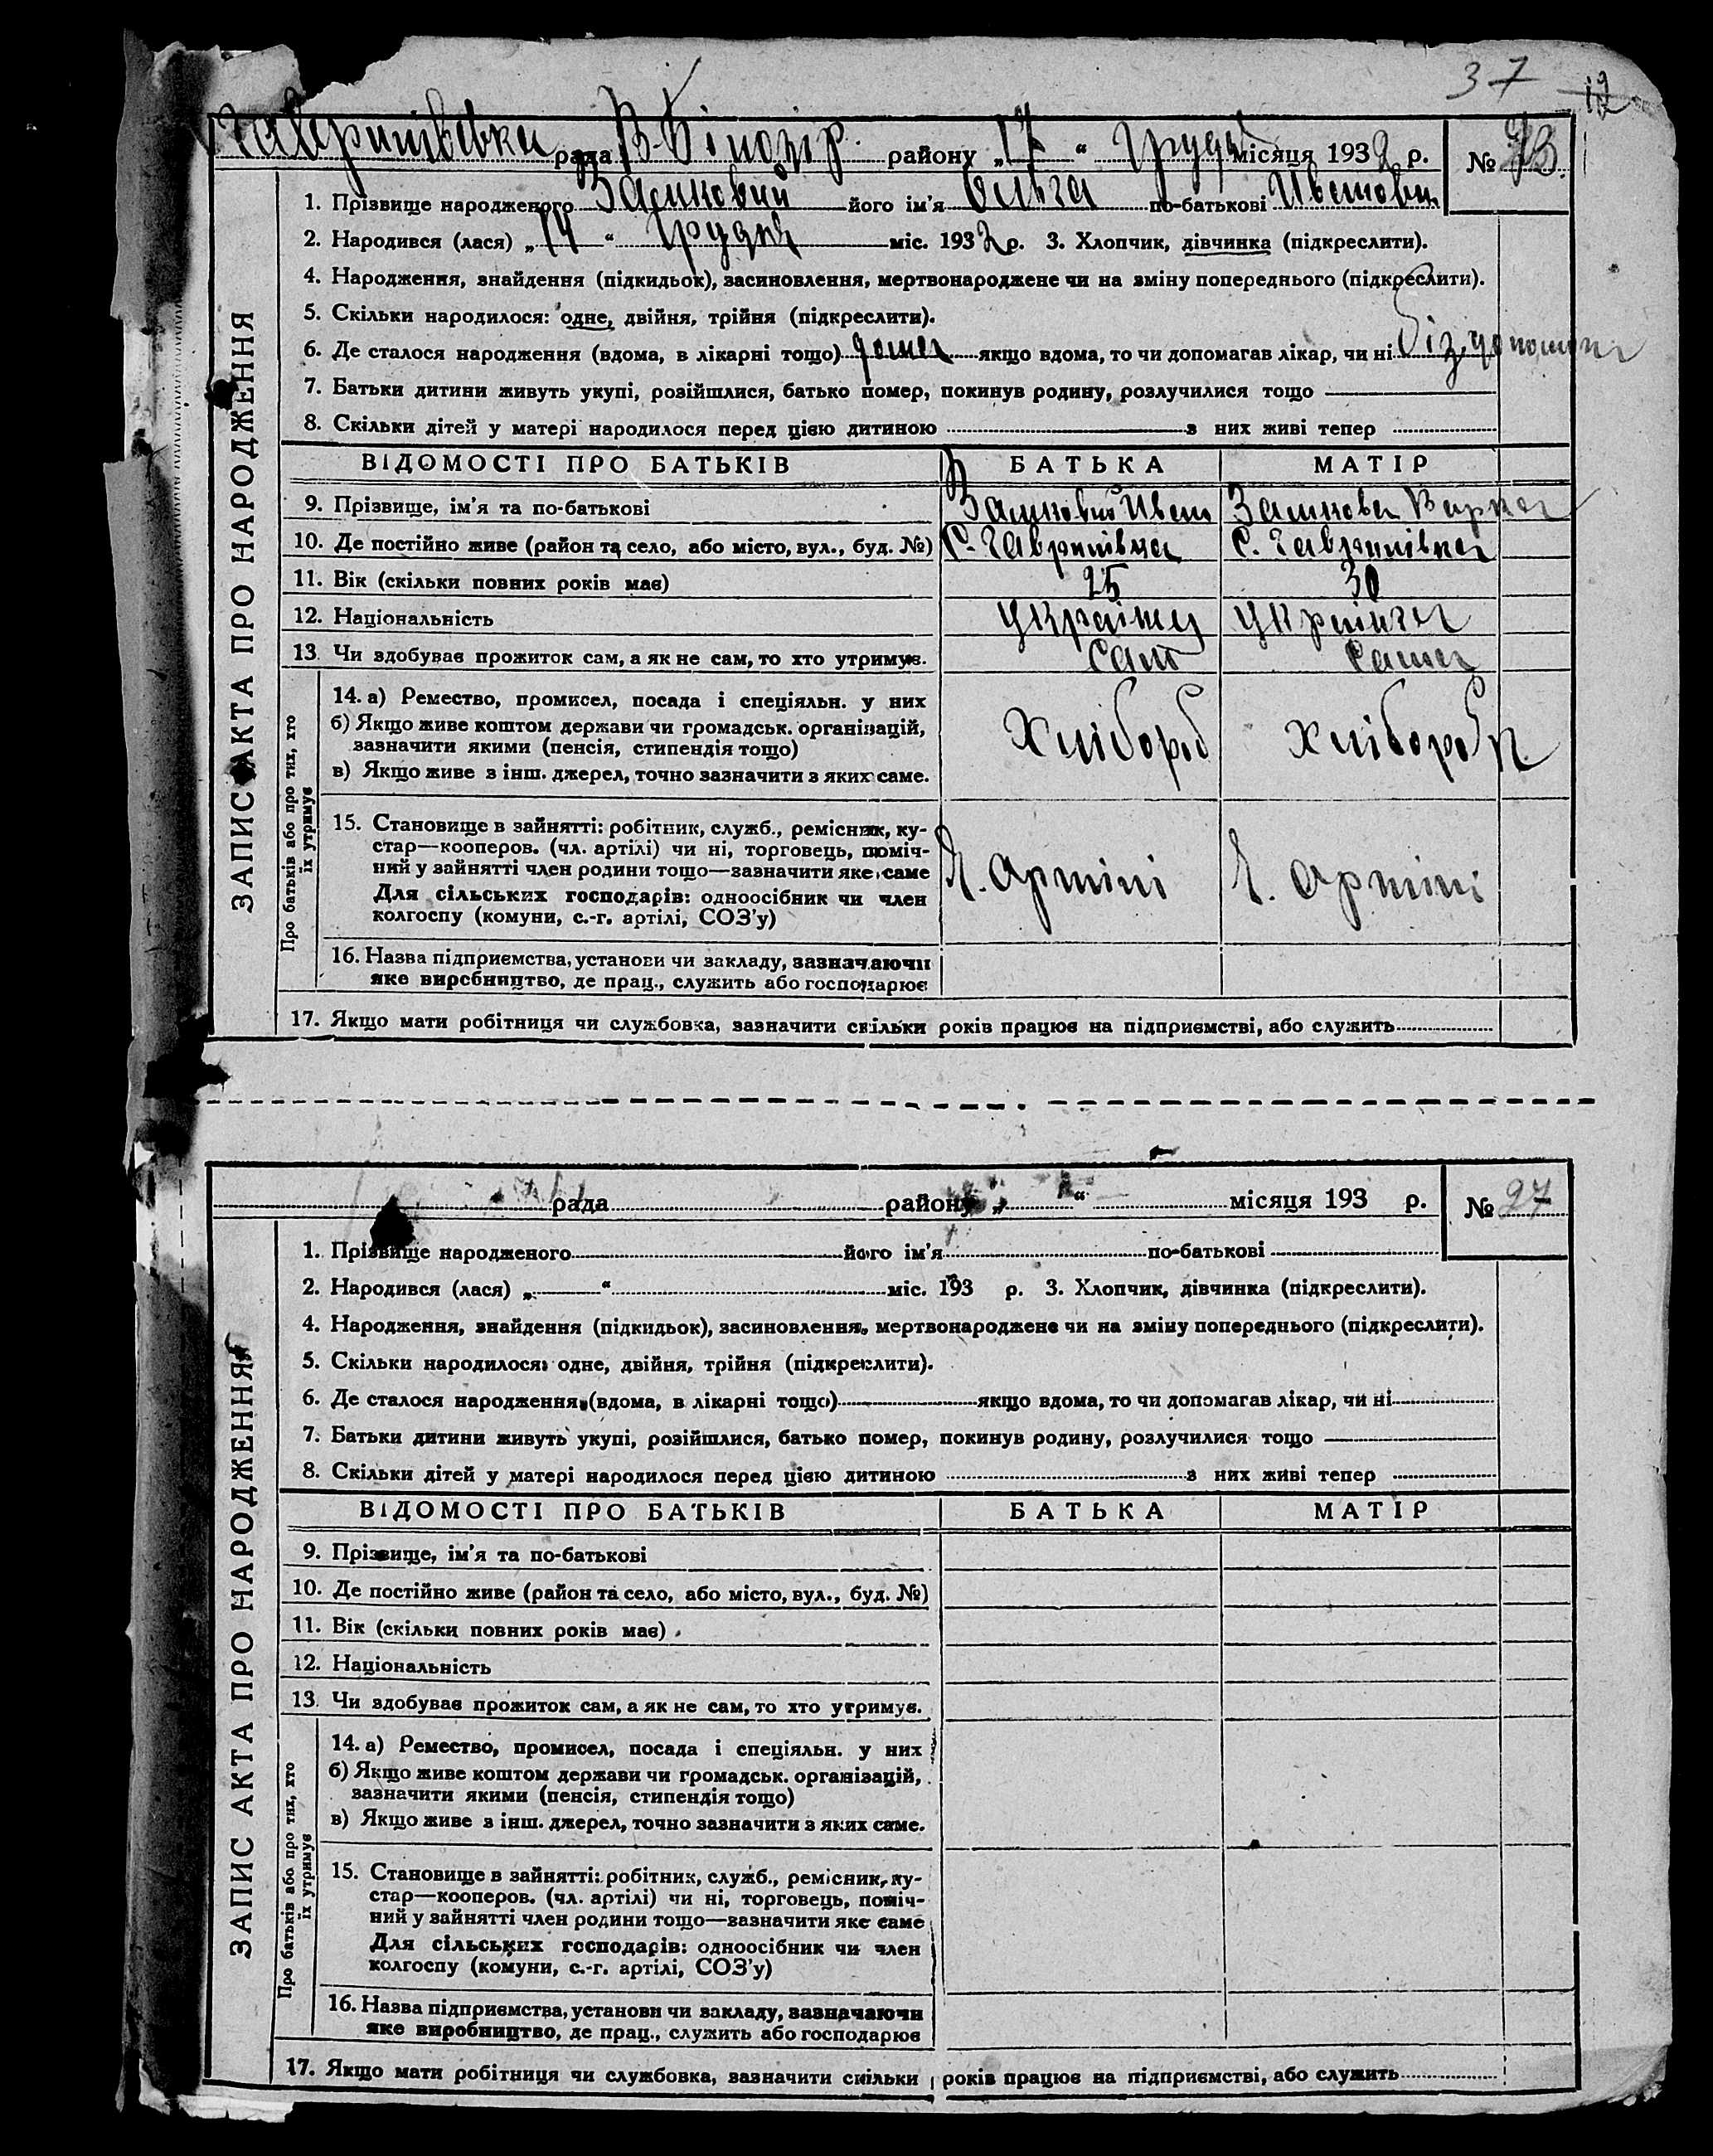 37 12
Гавришівська рада В-Білозір району „17“ Грудня місяця 1932 р. №
1. Прізвище народженого Замковий його ім'я Ольга по-батькові Ивановна
2. Народився (лася) „14“ Грудня міс. 1932 р. 3. Хлопчик, дівчинка (підкреслити).
4. Народження, знайдення (підкидьок), засиновлення, мертвонароджене чи на зміну попереднього (підкреслити).
5. Скільки народилося: одне, двійня, трійня (підкреслити).
6. Де сталося народження (вдома, в лікарні тощо) дома якщо вдома, то чи допомагав лікар, чи ні без допомоги
7. Батьки дитини живуть укупі, розійшлися, батько помер, покинув родину, розлучилися тощо
8. Скільки дітей у матері народилося перед цією дитиною з них живі тепер
ВІДОМОСТІ ПРО БАТЬКІВ БАТЬКА МАТІР
9. Прізвище, ім'я та по-батькові Замковий Иван Замкова Варка
10. Де постійно живе (район та село, або місто, вул., буд. №) С. С.
11. Вік (скільки повних років має) 25 30
12. Національність
13. Чи здобуває прожиток сам, а як не сам, то хто утримує. Сам Сама
14. а) Ремество, промисел, посада і спеціяльн. у них
б) Якщо живе коштом держави чи громадськ. організацій,
зазначити якими (пенсія, стипендія тощо) Хлібороб Хлібороб
в) Якщо живе з інш. джерел, точно зазначити з яких саме.
15. Становище в зайнятті: робітник, служб., ремісник, ку-
стар—кооперов. (чл. артілі) чи ні, торговець, поміч-
ний у зайнятті член родини тощо—зазначити яке саме
Ч. Артілі Ч. Артілі
Для сільських господарів: одноосібник чи член
колгоспу (комуни, с.-г. артілі, СОЗ'у)
16. Назва підприємства, установи чи закладу, зазначаючи
яке виробництво, де прац., служить або господарює
17. Якщо мати робітниця чи службовка, зазначити скільки років працює на підприємстві, або служить
ЗАПИС АКТА ПРО НАРОДЖЕННЯ
Про батьків або про тих, хто
їх утримує
рада району „ “ місяця 193 р. № 27
1. Прізвище народженого його ім'я по-батькові
2. Народився (лася) „ “ міс. 193 р. 3. Хлопчик, дівчинка (підкреслити).
4. Народження, знайдення (підкидьок), засиновлення, мертвонароджене чи на зміну попереднього (підкреслити).
5. Скільки народилося: одне, двійня, трійня (підкреслити).
6. Де сталося народження (вдома, в лікарні тощо) якщо вдома, то чи допомагав лікар, чи ні
7. Батьки дитини живуть укупі, розійшлися, батько помер, покинув родину, розлучилися тощо
8. Скільки дітей у матері народилося перед цією дитиною з них живі тепер
ВІДОМОСТІ ПРО БАТЬКІВ БАТЬКА МАТІР
9. Прізвище, ім'я та по-батькові
10. Де постійно живе (район та село, або місто, вул., буд. №)
11. Вік (скільки повних років має)
12. Національність
13. Чи здобуває прожиток сам, а як не сам, то хто утримує.
14. а) Ремество, промисел, посада і спеціяльн. у них
б) Якщо живе коштом держави чи громадськ. організацій,
зазначити якими (пенсія, стипендія тощо)
в) Якщо живе з інш. джерел, точно зазначити з яких саме.
15. Становище в зайнятті: робітник, служб., ремісник, ку-
стар—кооперов. (чл. артілі) чи ні, торговець, поміч-
ний у зайнятті член родини тощо—зазначити яке саме
Для сільських господарів: одноосібник чи член
колгоспу (комуни, с.-г. артілі, СОЗ'у)
16. Назва підприємства, установи чи закладу, зазначаючи
яке виробництво, де прац., служить або господарює
17. Якщо мати робітниця чи службовка, зазначити скільки років працює на підприємстві, або служить
ЗАПИС АКТА ПРО НАРОДЖЕННЯ
Про батьків або про тих, хто
їх утримує